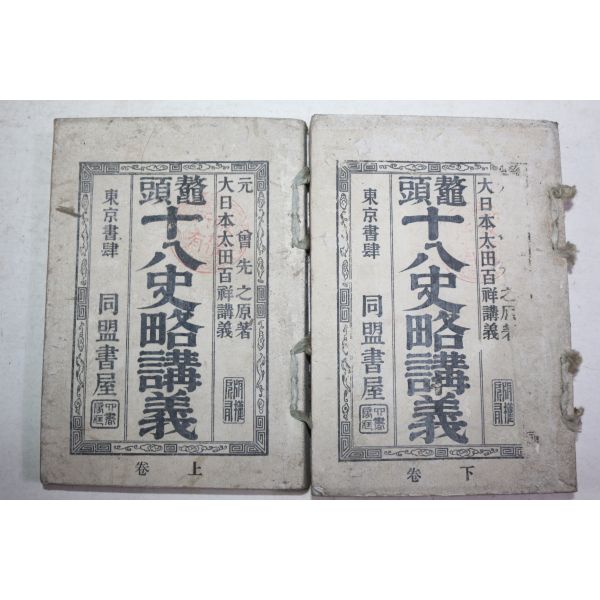 元 曾先之原著
大日本太田百祥講義
鼇頭
十八史略講義
東京書肆 同盟書屋
卷上
之原著
大日本太田百祥講義
鼇頭
十八史略講義
東京書肆 同盟書屋
卷下